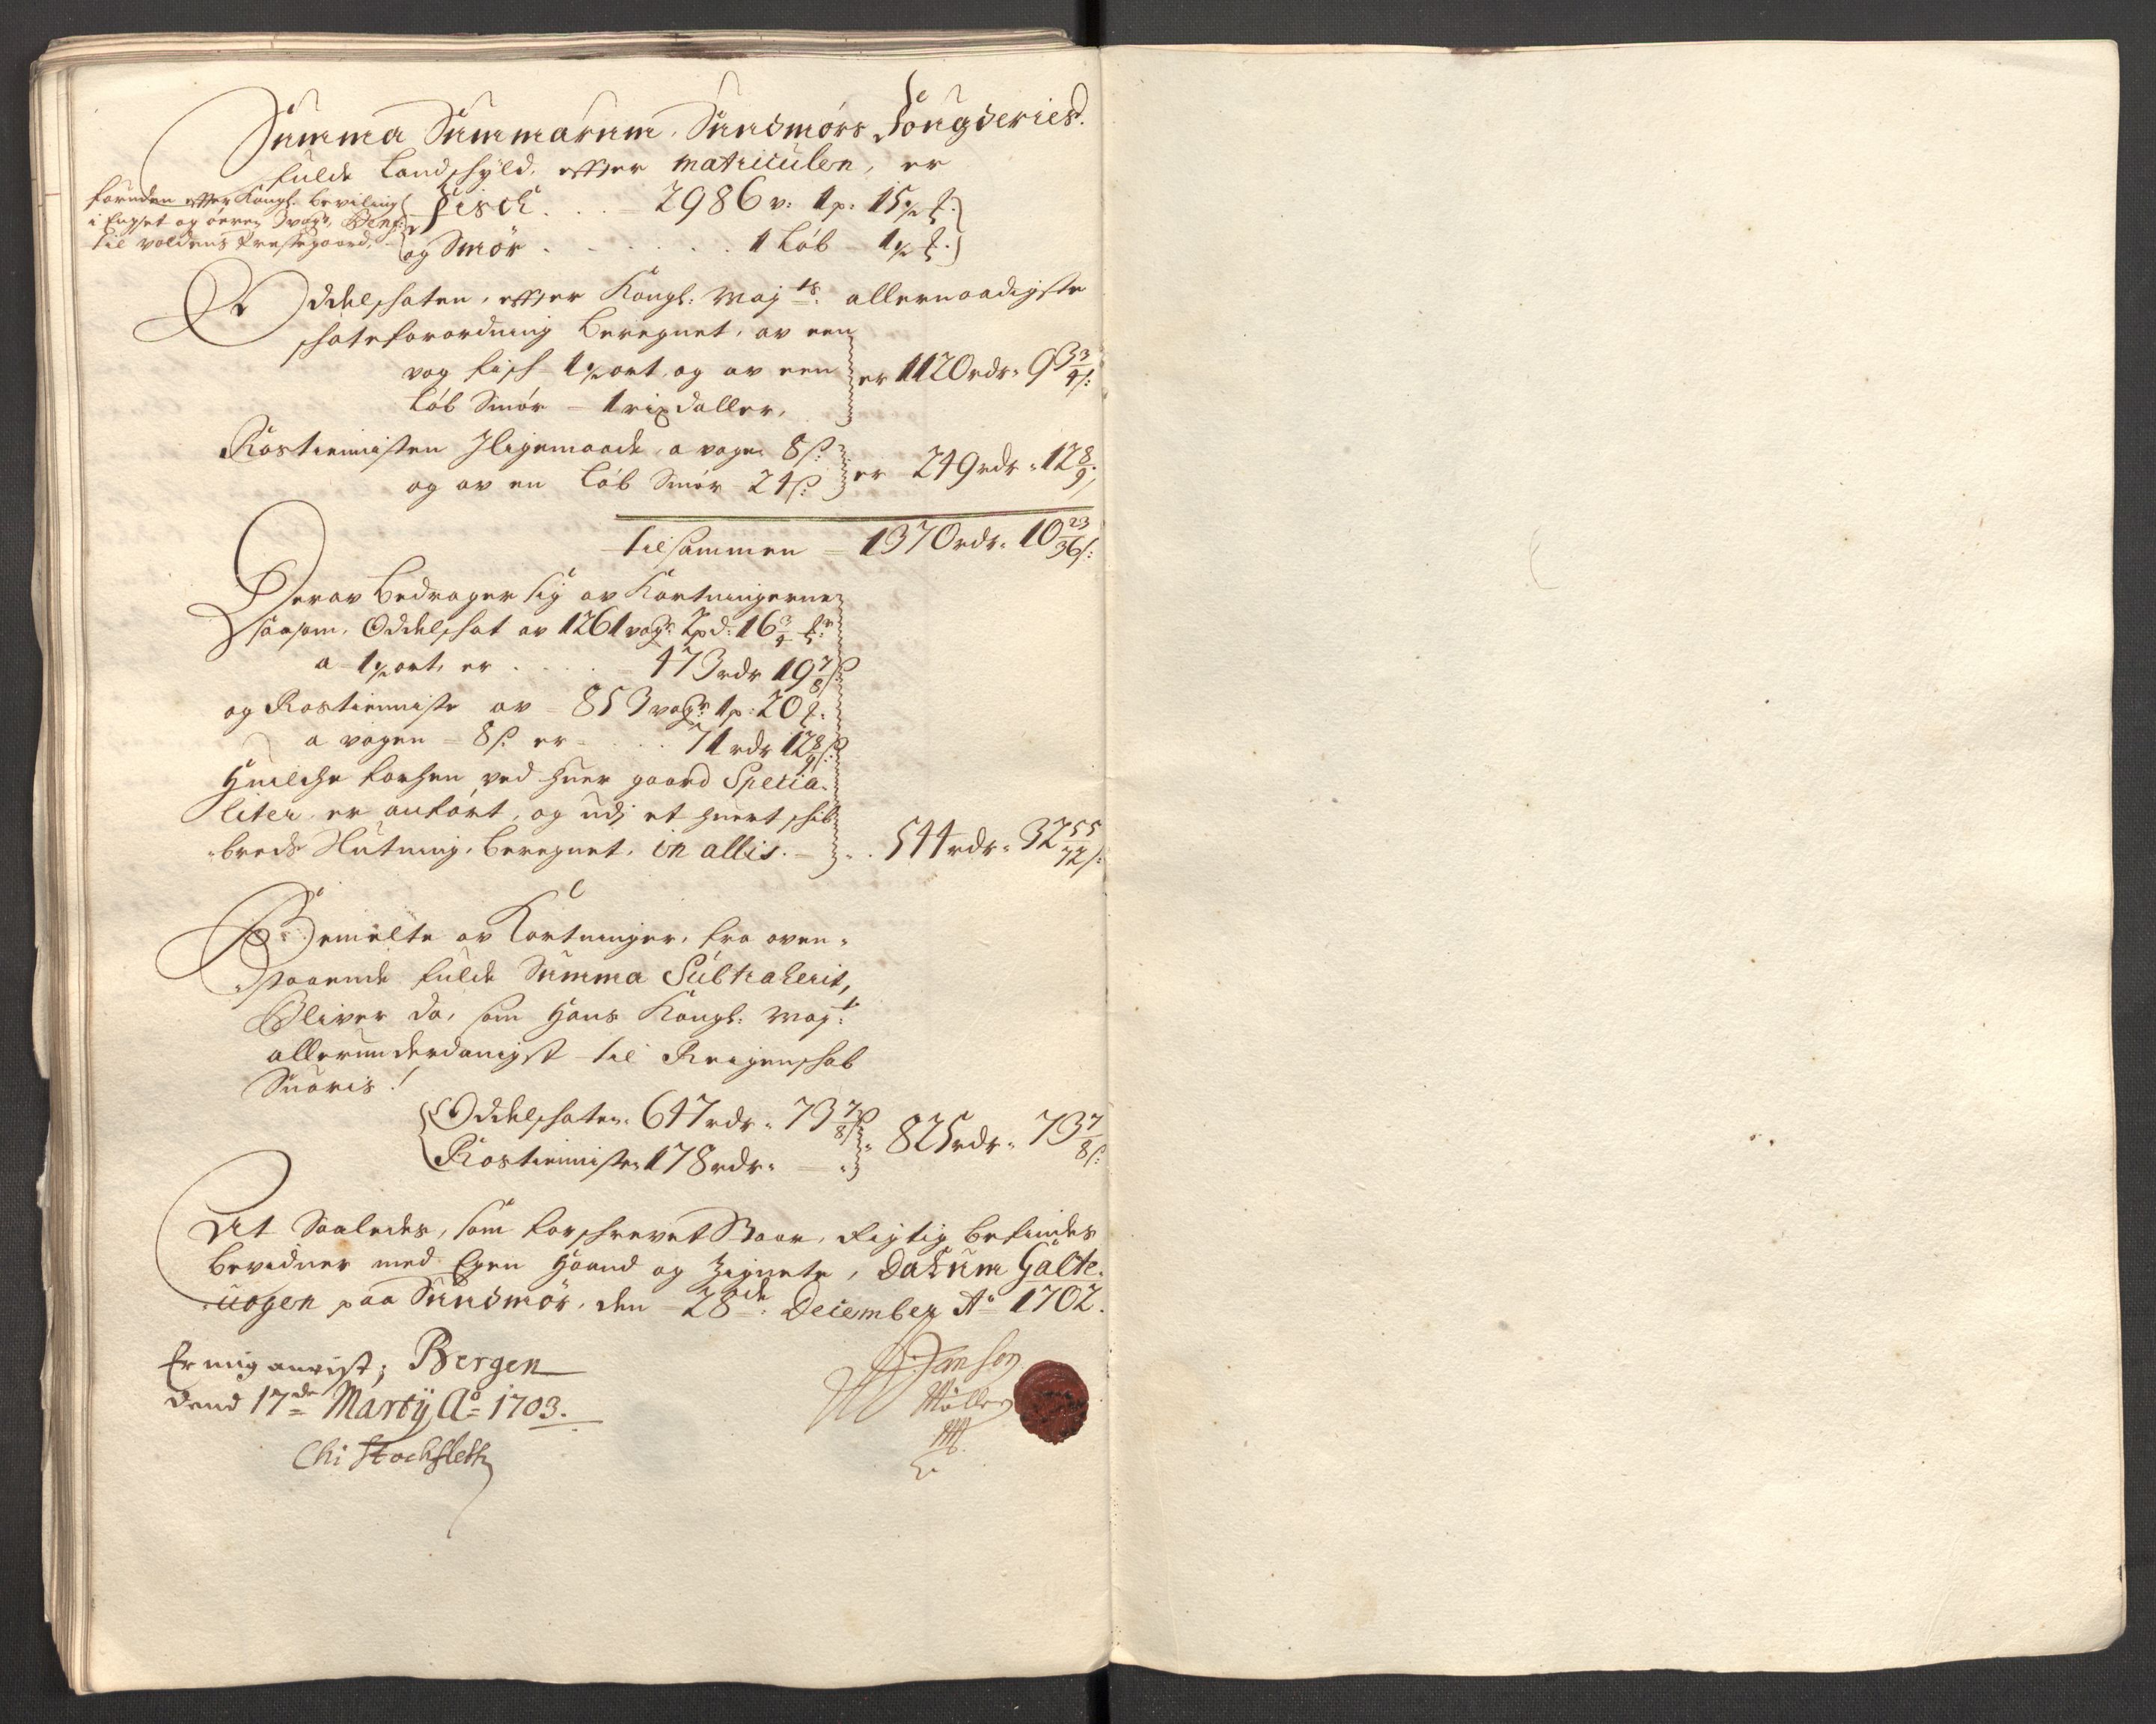 Summa Summarum, Sundmørs Fougderies
fulde Landschyld, effter Matriculen, er
foruden effter Kongl: beviling
til voldens Præstegaard,
Fisch . . . 2986 v: 1 p: 15
og Smör . . . . . . 1 Löb 1
Oddelschaten, effter Kongl: May ts: allernaadigste
schatteforordning beregnet, av een
vog fisch 1 ort, og av een
Löb Smör = 1 rixdaller,
er 1120 rdr: 93 3/4 s:
Rostienisten Iligemaade, a vogen 8 s:
og av en Löb Smör 24 s:
er 249 rdr: 12 8/9
tilsammen = 1370 rdr: 10 23/36 s:
Derav bedrager sig av Kortningerne
saasom, Oddelschat av 1261 vog: 2 pd: 16 3/4
a 1 ort, er . . . . 473 rdr 19 7/8 s
og Rostienniste av = 853 vog: 1 p: 20
a vogen = 8 s: er . . . 71 rdr 12 8/9 s:
Huilche forhen ved huer gaard Specia-
liter er anført, og udj et huert schib-
breds Slutning, beregnet, in allis. . . 544 rdr: 32 55/72 s:
Bemelte av Kortninger, fra oven-
staaende fulde Summa Subtraherit,
Bliver da, som Hans Kongl: May t:
allerunderdanigst til Reigenschab
Suaris!
Oddelschaten: 647 rdr: 73 7/8 s
Rostienniste: 178 rdr:
825 rdr: 73 7/8 s:
At Saaledes, som forschrevet staar, rigtig befindes
bevidner med Egen Haand og Zignete, Datum Galte-
uogen paa Sundmör, den 28 de: December Ao 1702.
Er mig anvist; Bergen
dend 17 de Martÿ Ao 1703.
Chr Stochfleth
Müller